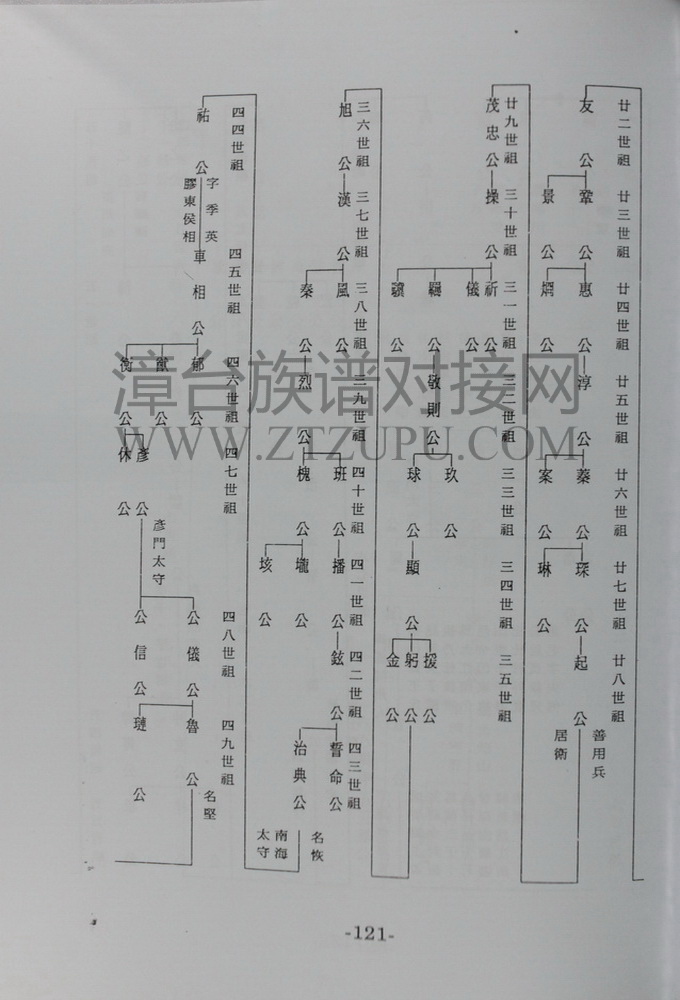 廿二世祖
友公
廿三世祖
鞏公
景公
廿四世祖
惠公
燜公
廿五世祖
淳公
廿六世祖
蓁公
案公
廿七世祖
琛公
琳公
廿八世祖
起公
善用兵
居衛
廿九世祖
茂忠公
三十世祖
操公
三一世祖
祈公
儀公
公
公
三二世祖
敬則公
三三世祖
玖公
球公
三四世祖
顯公
三五世祖
援公
躬公
金公
三六世祖
旭公
三七世祖
漢公
三八世祖
嵐公
秦公
三九世祖
烈公
四十世祖
班公
槐公
四一世祖
播公
壠公
垓公
四二世祖
鉉公
四三世祖
誓命公
治典公
名恢
南海
太守
四四世祖
祐公
字季英
膠東侯相
四五世祖
車相公
四六世祖
郁公
公
衡公
四七世祖
彥公
休公
彥門太守
四八世祖
公儀公
公信公
四九世祖
魯公
璉公
名堅
漳台族谱对接网
WWW.ZTZUPU.COM
-121-